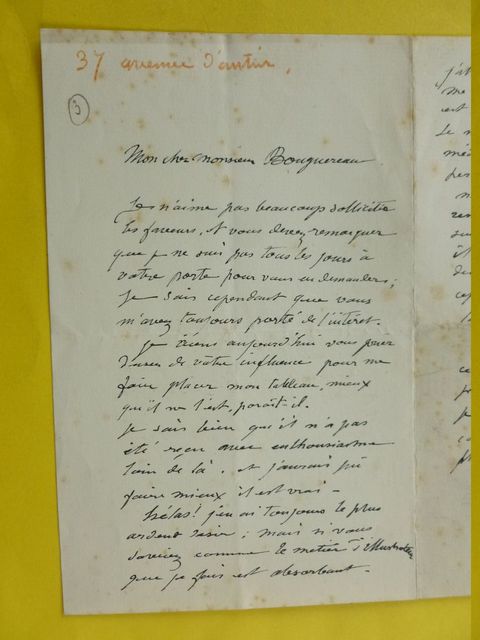 37 avenue d'antin.
3
Mon cher monsieur Bouguereau
Je n'aime pas beaucoup solliciter
les faveurs, et vous devez remarquer
que je ne suis pas tous les jours à
votre porte pour vous en demander;
Je sais cependant que vous
m'avez toujours porté de l'intérêt.
Je viens aujourd'hui vous prier
d'user de votre influence pour me
faire placer mon tableau, mieux
qu'il ne l'est, paraît-il.
Je sais bien qu'il n'a pas
été reçu avec enthousiasme
loin de là, et j'aurais pu
faire mieux il est vrai -
hélas! j'en ai toujours le plus
ardent désir; mais si vous
saviez comme le métier d'illustrateur
que je fais est absorbant.